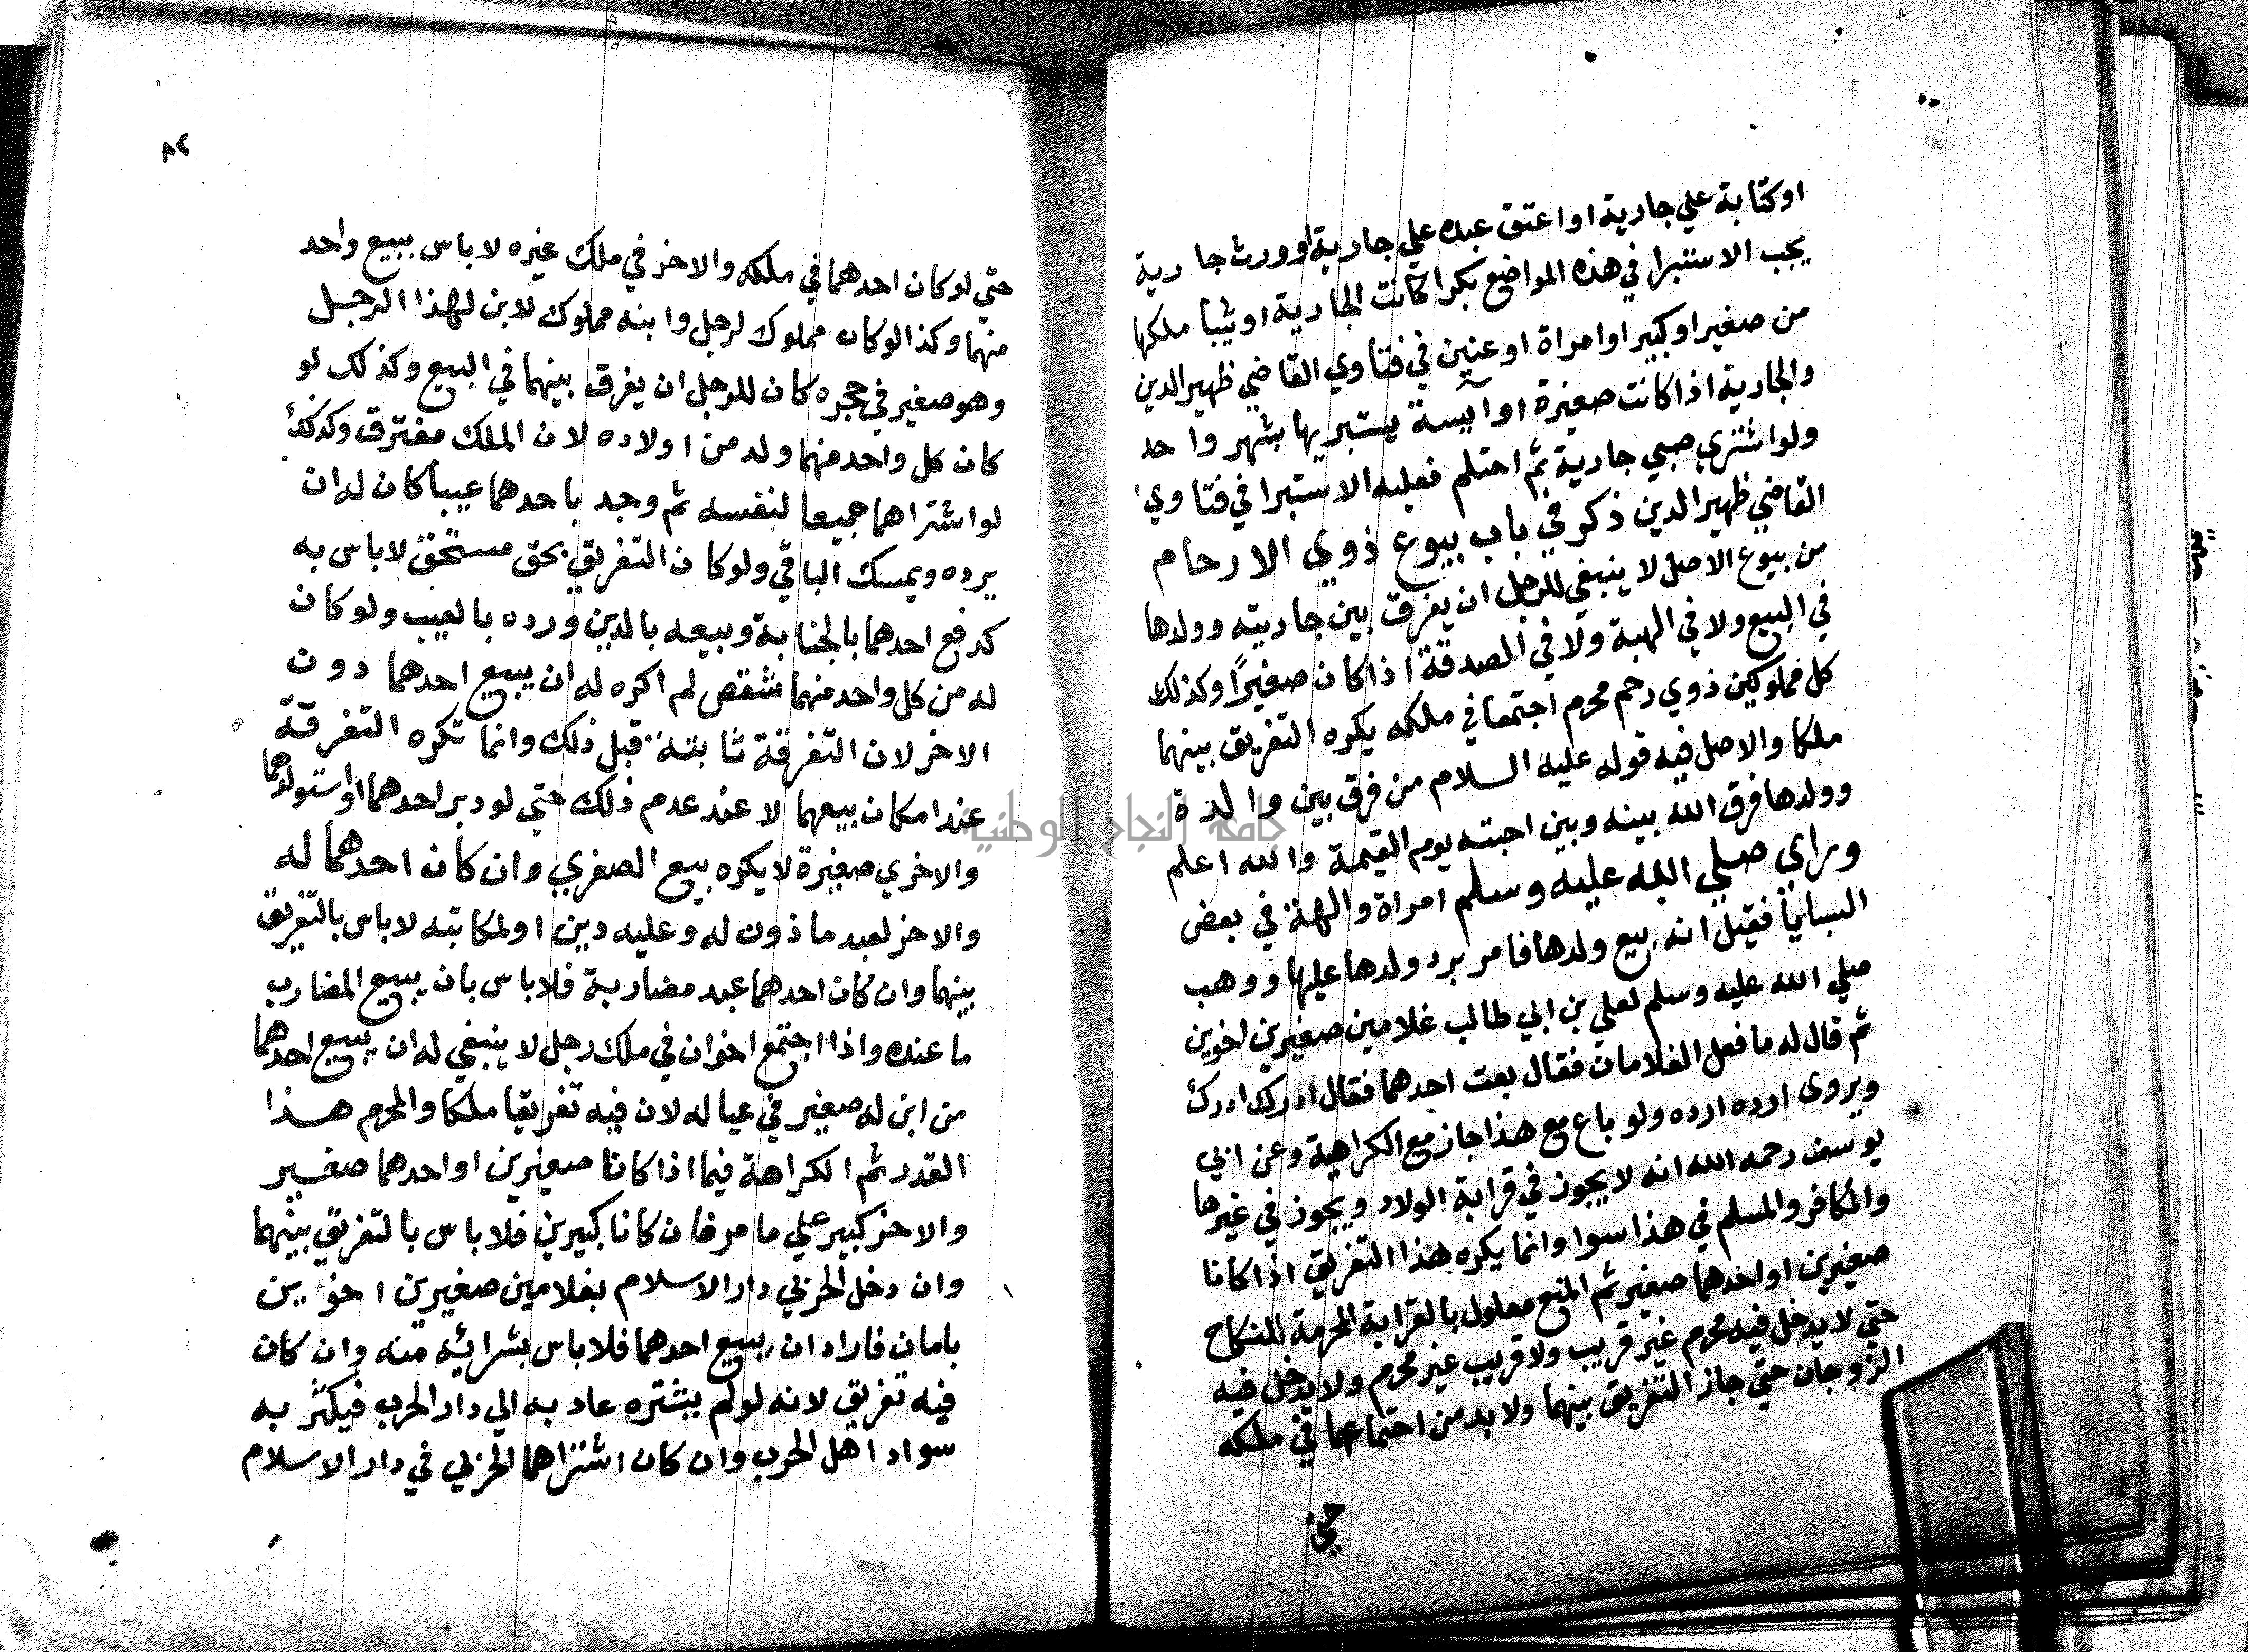 اوكتابة علي جارية او اعتق عبده علي جارية او ورث جارية
يجب الاستبرا في هذه المواضع بكرا كانت الجارية او ثيبا ملكها
من صغير او كبير او امراة او عنين في فتاوي القاضي ظهير الدين
والجارية اذا كانت صغيرة او آيسة يستبريها بشهر واحد
ولو اشتري صبي جارية ثم احتلم فعليه الاستبرا في فتاوي
القاضي ظهير الدين ذكر في باب بيوع ذوي الارحام
من بيوع الاصل لا ينبغي للرجل ان يفرق بين جاريته وولدها
في البيع ولا في الهبة ولا في الصدقة اذا كان صغيرًا وكذلك
كل مملوكين ذوي رحم محرم اجتمعا في ملكه يكره التفريق بينهما
ملكا والاصل فيه قوله عليه السلام من فرق بين والدة
وولدها فرق الله بينه وبين احبته يوم القيمة والله اعلم
وراي صلي الله عليه وسلم امراة والهة في بعض
السبايا فقيل انه بيع ولدها فامر برد ولدها عليها ووهب
صلي الله عليه وسلم لعلي بن ابي طالب غلامين صغيرين اخوين
ثم قال له ما فعل الغلامان فقال بعت احدهما فقال ادرك ادرك
ويروي اردده اردده ولو باع مع هذا جاز مع الكراهية وعن ابي
يوسف رحمه الله انه لا يجوز في قرابة الولاد ويجوز في غيرها
والكافر والمسلم في هذا سوا وانما يكره هذا التفريق اذا كانا
صغيرين او احدهما صغير ثم المنع معلول بالقرابة المحرمة للنكاح
حتي لا يدخل فيه محرم غير قريب ولا قريب غير محرم ولا يدخل فيه
الزوجان حتي جاز التفريق بينهما ولا بد من اجتماعهما في ملكه
حتي
٨٢
حتي لو كان احدهما في ملكه والاخر في ملك غيره لا باس ببيع واحد
منهما وكذا لو كان مملوك لرجل وابنه مملوك لابن لهذا الرجل
وهو صغير في حجره كان للرجل ان يفرق بينهما في البيع وكذلك لو
كان كل واحد منهما ولد من اولاده لان الملك مفترق وكذلك
لو اشتراهما جميعا لنفسه ثم وجد باحدهما عيبا كان له ان
يرده ويمسك الباقي ولو كان التفريق بحق مستحق لا باس به
كدفع احدهما بالجناية وبيعه بالدين ورده بالعيب ولو كان
له من كل واحد منهما شقص لم اكره له ان يبيع احدهما دون
الاخر لان التفرقة ثابتة قبل ذلك وانما تكره التفرقة
عند امكان بيعهما لا عند عدم ذلك حتي لو دبر احدهما او استولدهما
والاخري صغيرة لا يكره بيع الصغري وان كان احدهما له
والاخر لعبد ماذون له وعليه دين او لمكاتبه لا باس بالتفريق
بينهما وان كان احدهما عبد مضاربة فلا باس بان يبيع المضارب
ما عنده واذا اجتمع اخوان في ملك رجل لا ينبغي له ان يبيع احدهما
من ابن له صغير في عياله لان فيه تفريقا ملكا والمحرم هذا
القدر ثم الكراهة فيما اذا كانا صغيرين او احدهما صغير
والاخر كبير علي ما مر فان كانا كبيرين فلا باس بالتفريق بينهما
وان دخل الحربي دار الاسلام بغلامين صغيرين اخوين
بامان فاراد ان يبيع احدهما فلا باس بشرائه منه وان كان
فيه تفريق لانه لو لم يشتره عاد به الي دار الحرب فيكثر به
سواد اهل الحرب وان كان اشتراهما الحربي في دار الاسلام
جامعة النجاح الوطنية